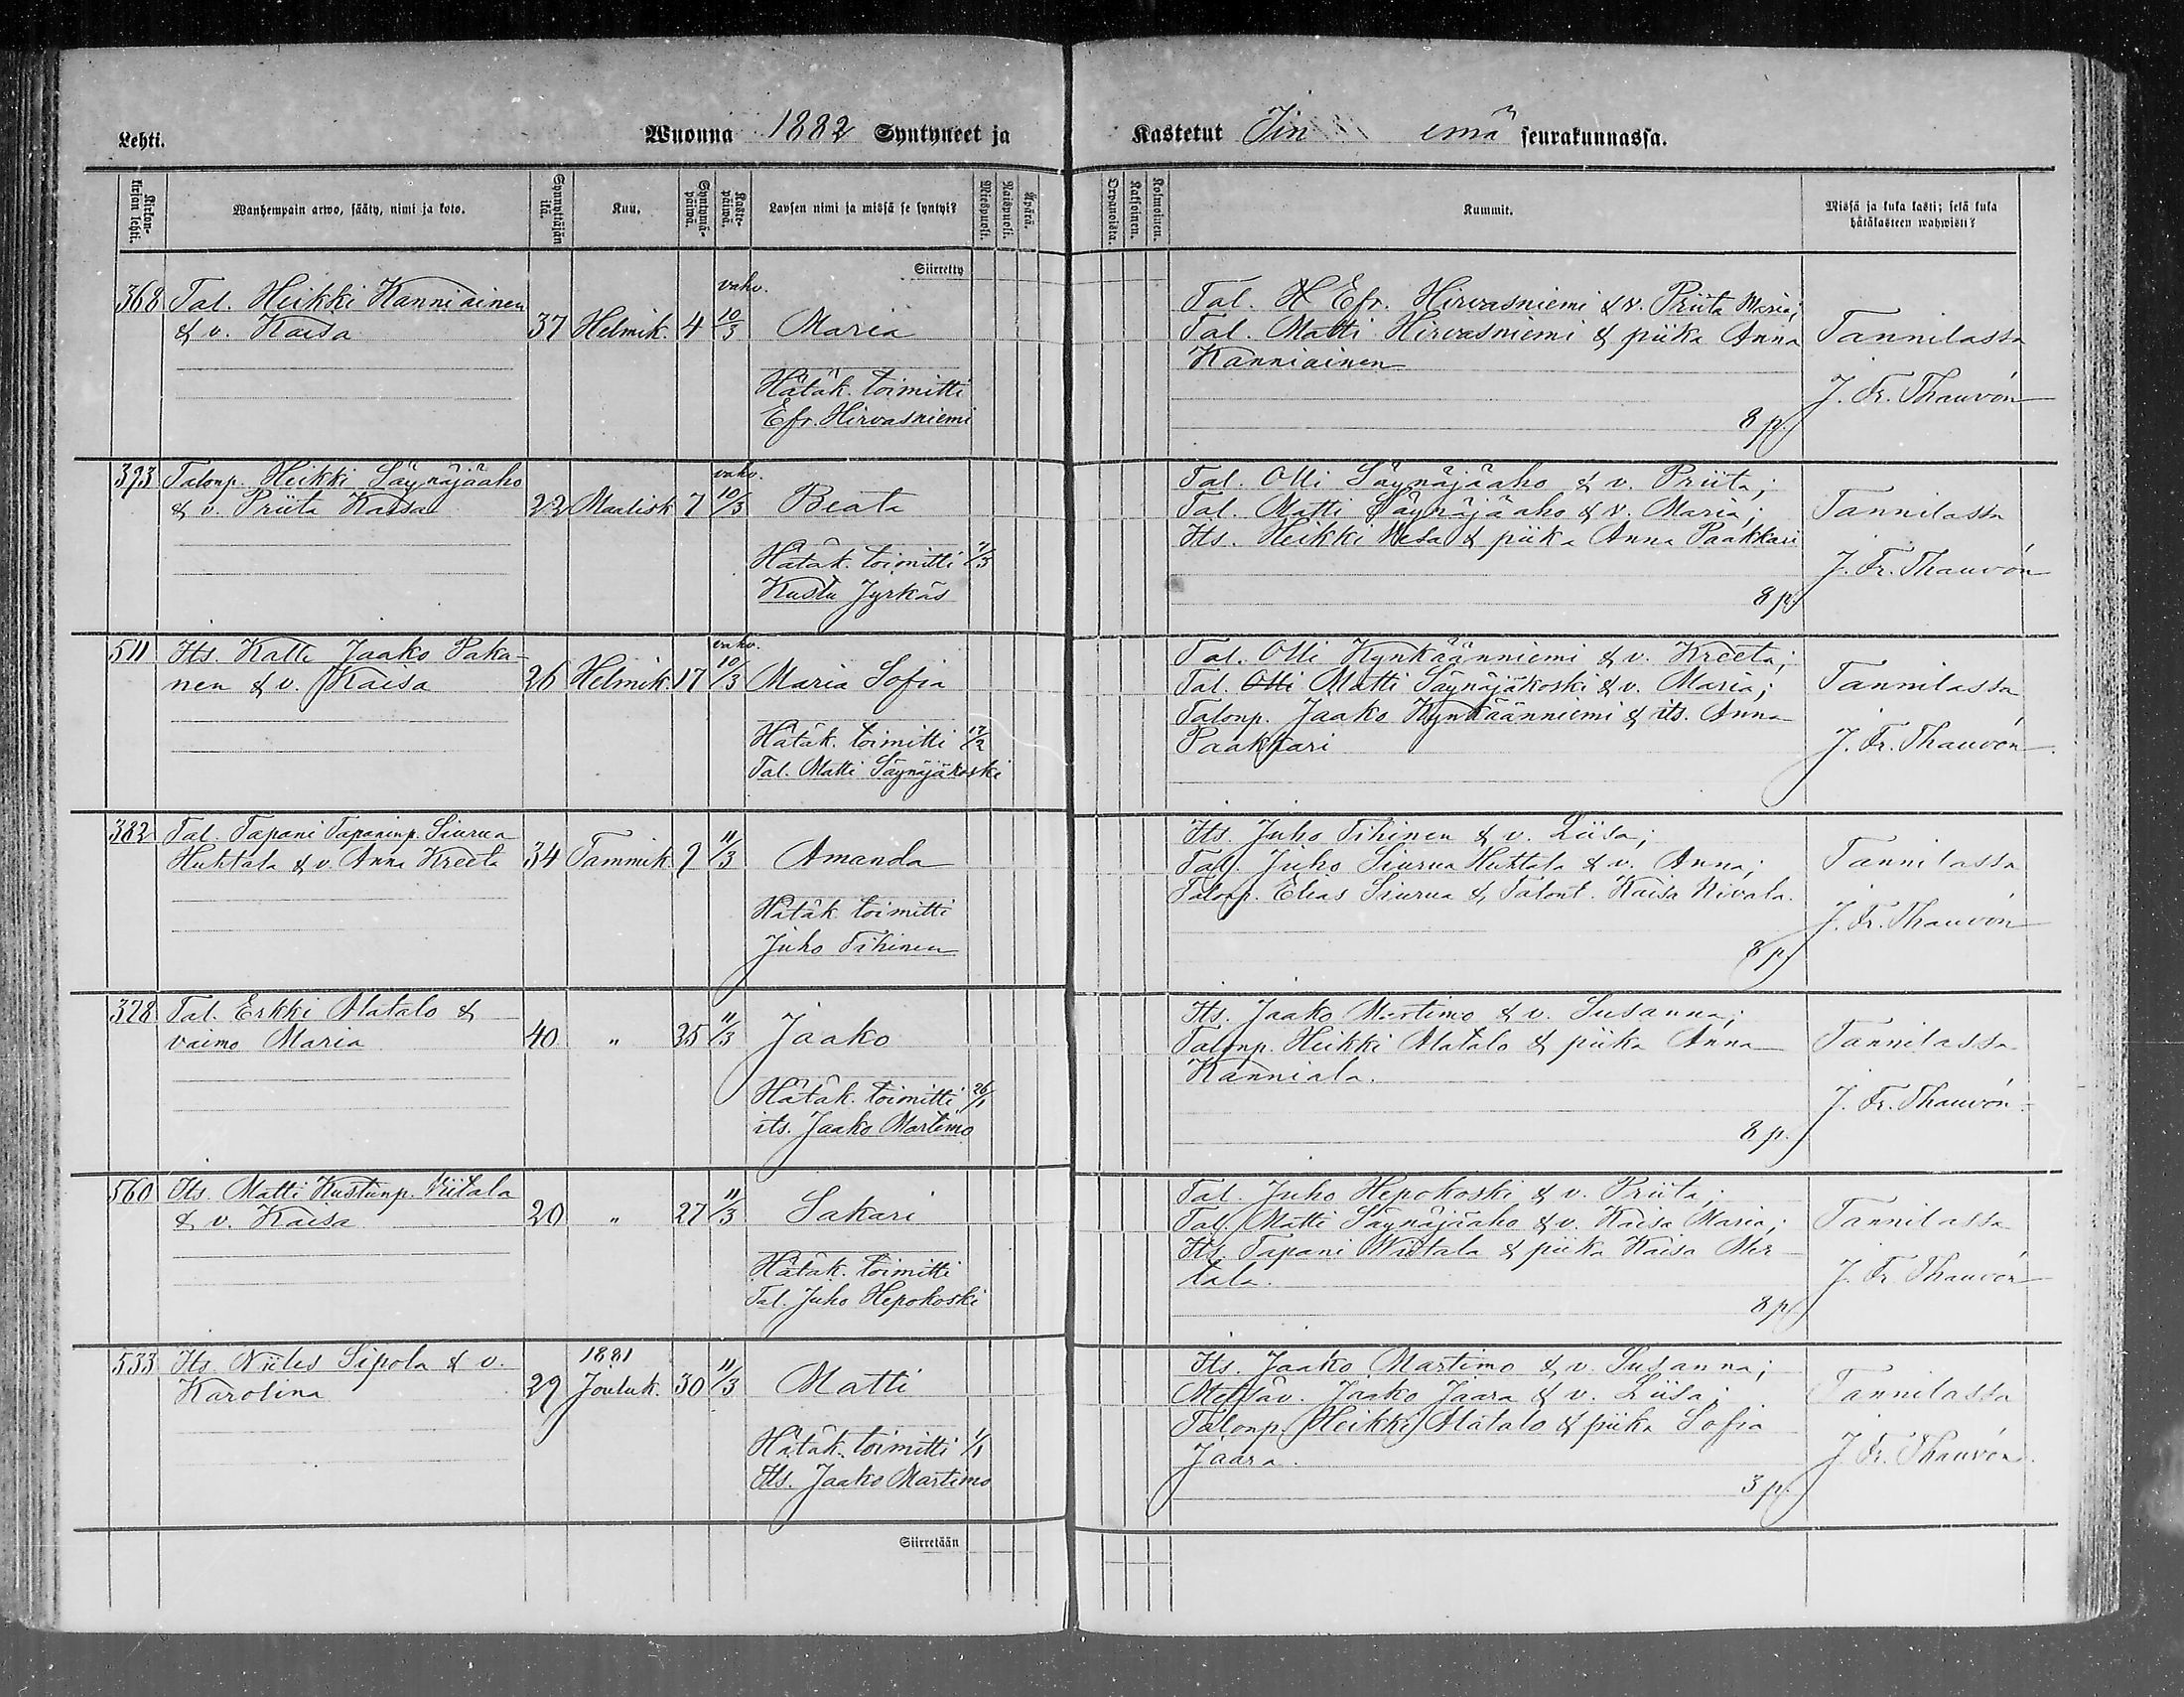 Lehti.
Wuonna 1882 Syntyneet ja Kastetut Iin emä seurakunnassa.
Kirkon-kirjan lehti.
Wanhempain arwo, sääty, nimi ja koto.
Synnyttäjän ikä.
Kuu.
Syntymä-päiwä.
Kaste-päiwä.
Lapsen nimi ja missä se syntyi?
Miespuoli.
Naispuoli.
Äpärä.
Orpanoista.
Kaksoinen.
Kolmoinen.
Kummit.
Missä ja kuka kasti; sekä kuka
hätäkasteen wahwisti?
Siirretty
368 Tal. Heikki Kanniainen
& v. Kaisa 37 Helmik. 4 vahv. 10/3 Maria
Hätäk. toimitti
Efr. Hirvasniemi
Tal. H Efr. Hirvasniemi & v. Priita Maria;
Tal. Matti Hirvasniemi & piika Anna
Kanniainen
8 p.
Tannilassa
J. Fr. Thauvón
393 Talonp. Heikki Säynäjäaho
& v. Priita Kaisa 22 Maalisk 7 vahv. 10/3 Beata
Hätäk. toimitti 7/3
Kustu Jyrkäs
Tal. Olli Säynäjäaho & v. Priita;
Tal. Matti Säynäjäaho & v. Maria;
Its. Heikki Wesa & piika Anna Paakkari
8 p.
Tannilassa
J. Fr. Thauvón
511 Its. Kalle Jaako Paka-
nen & v. Kaisa 26 Helmik. 17 vahv. 10/3 Maria Sofia
Hätäk. toimitti 17/2
Tal. Matti Säynäjäkoski
Tal. Olli Kynkäänniemi & v. Kreeta;
Tal. Olli Matti Säynäjäkoski & v. Maria;
Talonp. Jaako Kynkäänniemi & its. Anna
Paakkari
Tannilassa
J. Fr. Thauvón
382 Tal. Tapani Tapaninp. Siurua
Huhtala & v. Anna Kreeta 34 Tammik. 9 11/3 Amanda
Hätäk toimitti
Juho Tihinen
Its. Juho Tihinen & v. Liisa;
Tal. Juho Siurua Huhtala & v. Anna;
Talonp. Elias Siurua & Talont. Kaisa Nivala.
8 p.
Tannilassa
J. Fr. Thauvón
328 Tal. Erkki Alatalo &
vaimo Maria 40 " 25 11/3 Jaako
Hätäk. toimitti 26/1
its. Jaako Martimo
Its. Jaako Martimo & v. Susanna;
Talonp. Heikki Alatalo & piika Anna
Kanniala.
8 p.
Tannilassa
J. Fr. Thauvón
560 Its. Matti Kustunp. Viitala
& v. Kaisa 20 " 27 11/3 Sakari
Hätäk. toimitti
Tal. Juho Hepokoski
Tal. Juho Hepokoski & v. Priita;
Tal. Matti Säynäjäaho & v. Kaisa Maria;
Its. Tapani & piika Kaisa
tala.
8 p.
Tannilassa
J. Fr. Thauvón
533 Its. Niiles Sipola & v.
Karolina 29 1881 Jouluk. 30 11/3 Matti
Hätäk. toimitti 1/1
Its. Jaako Martimo
Its. Jaako Martimo & v. Susanna;
Metsäv. Jaako Jaara & v. Liisa;
Talonp. Heikki Alatalo & piika Sofia
Jaara.
3 p.
Tannilassa
J. Fr. Thauvón.
Siirretään